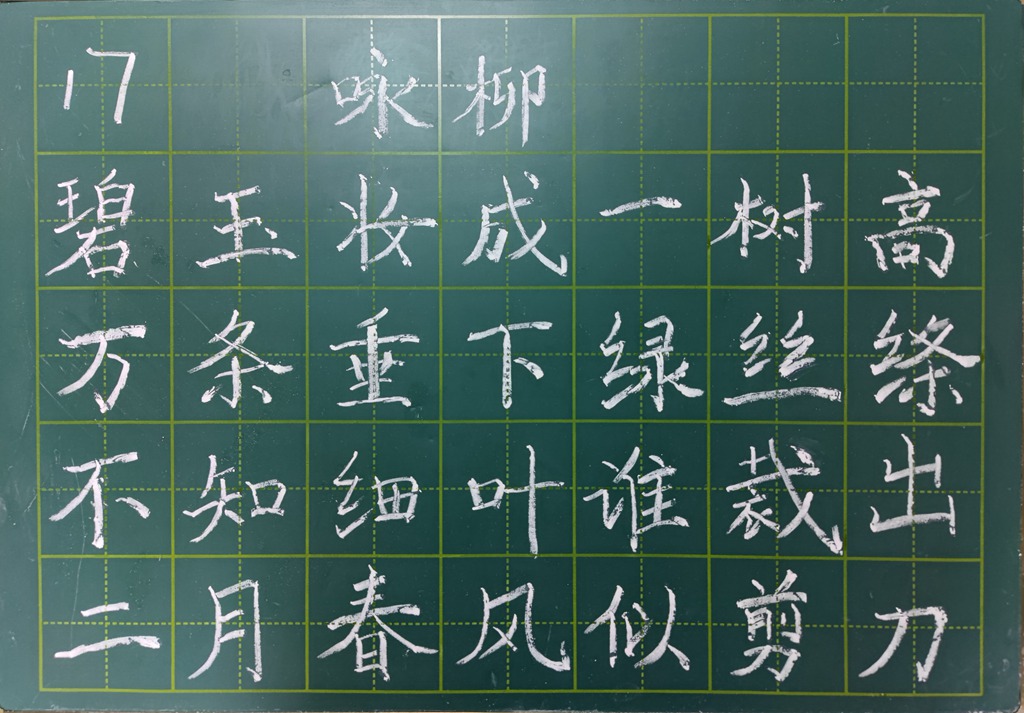 17 咏柳
碧玉妆成一树高
万条垂下绿丝绦
不知细叶谁裁出
二月春风似剪刀